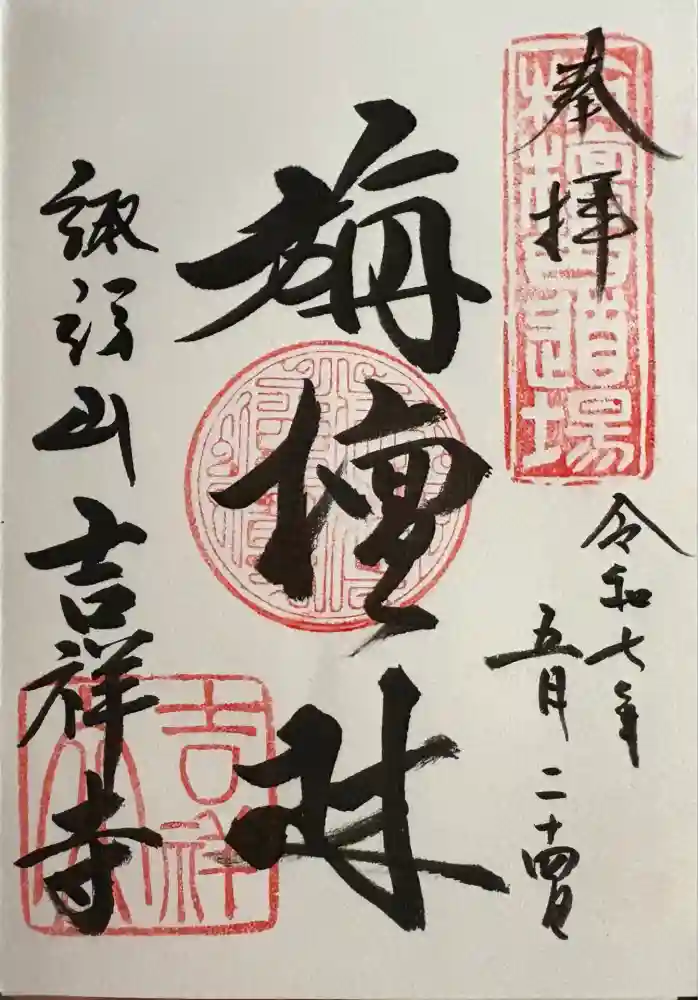 奉拝
栴檀道場
令和七年
五月二十四日
旃檀林
諏訪山吉祥寺
吉祥